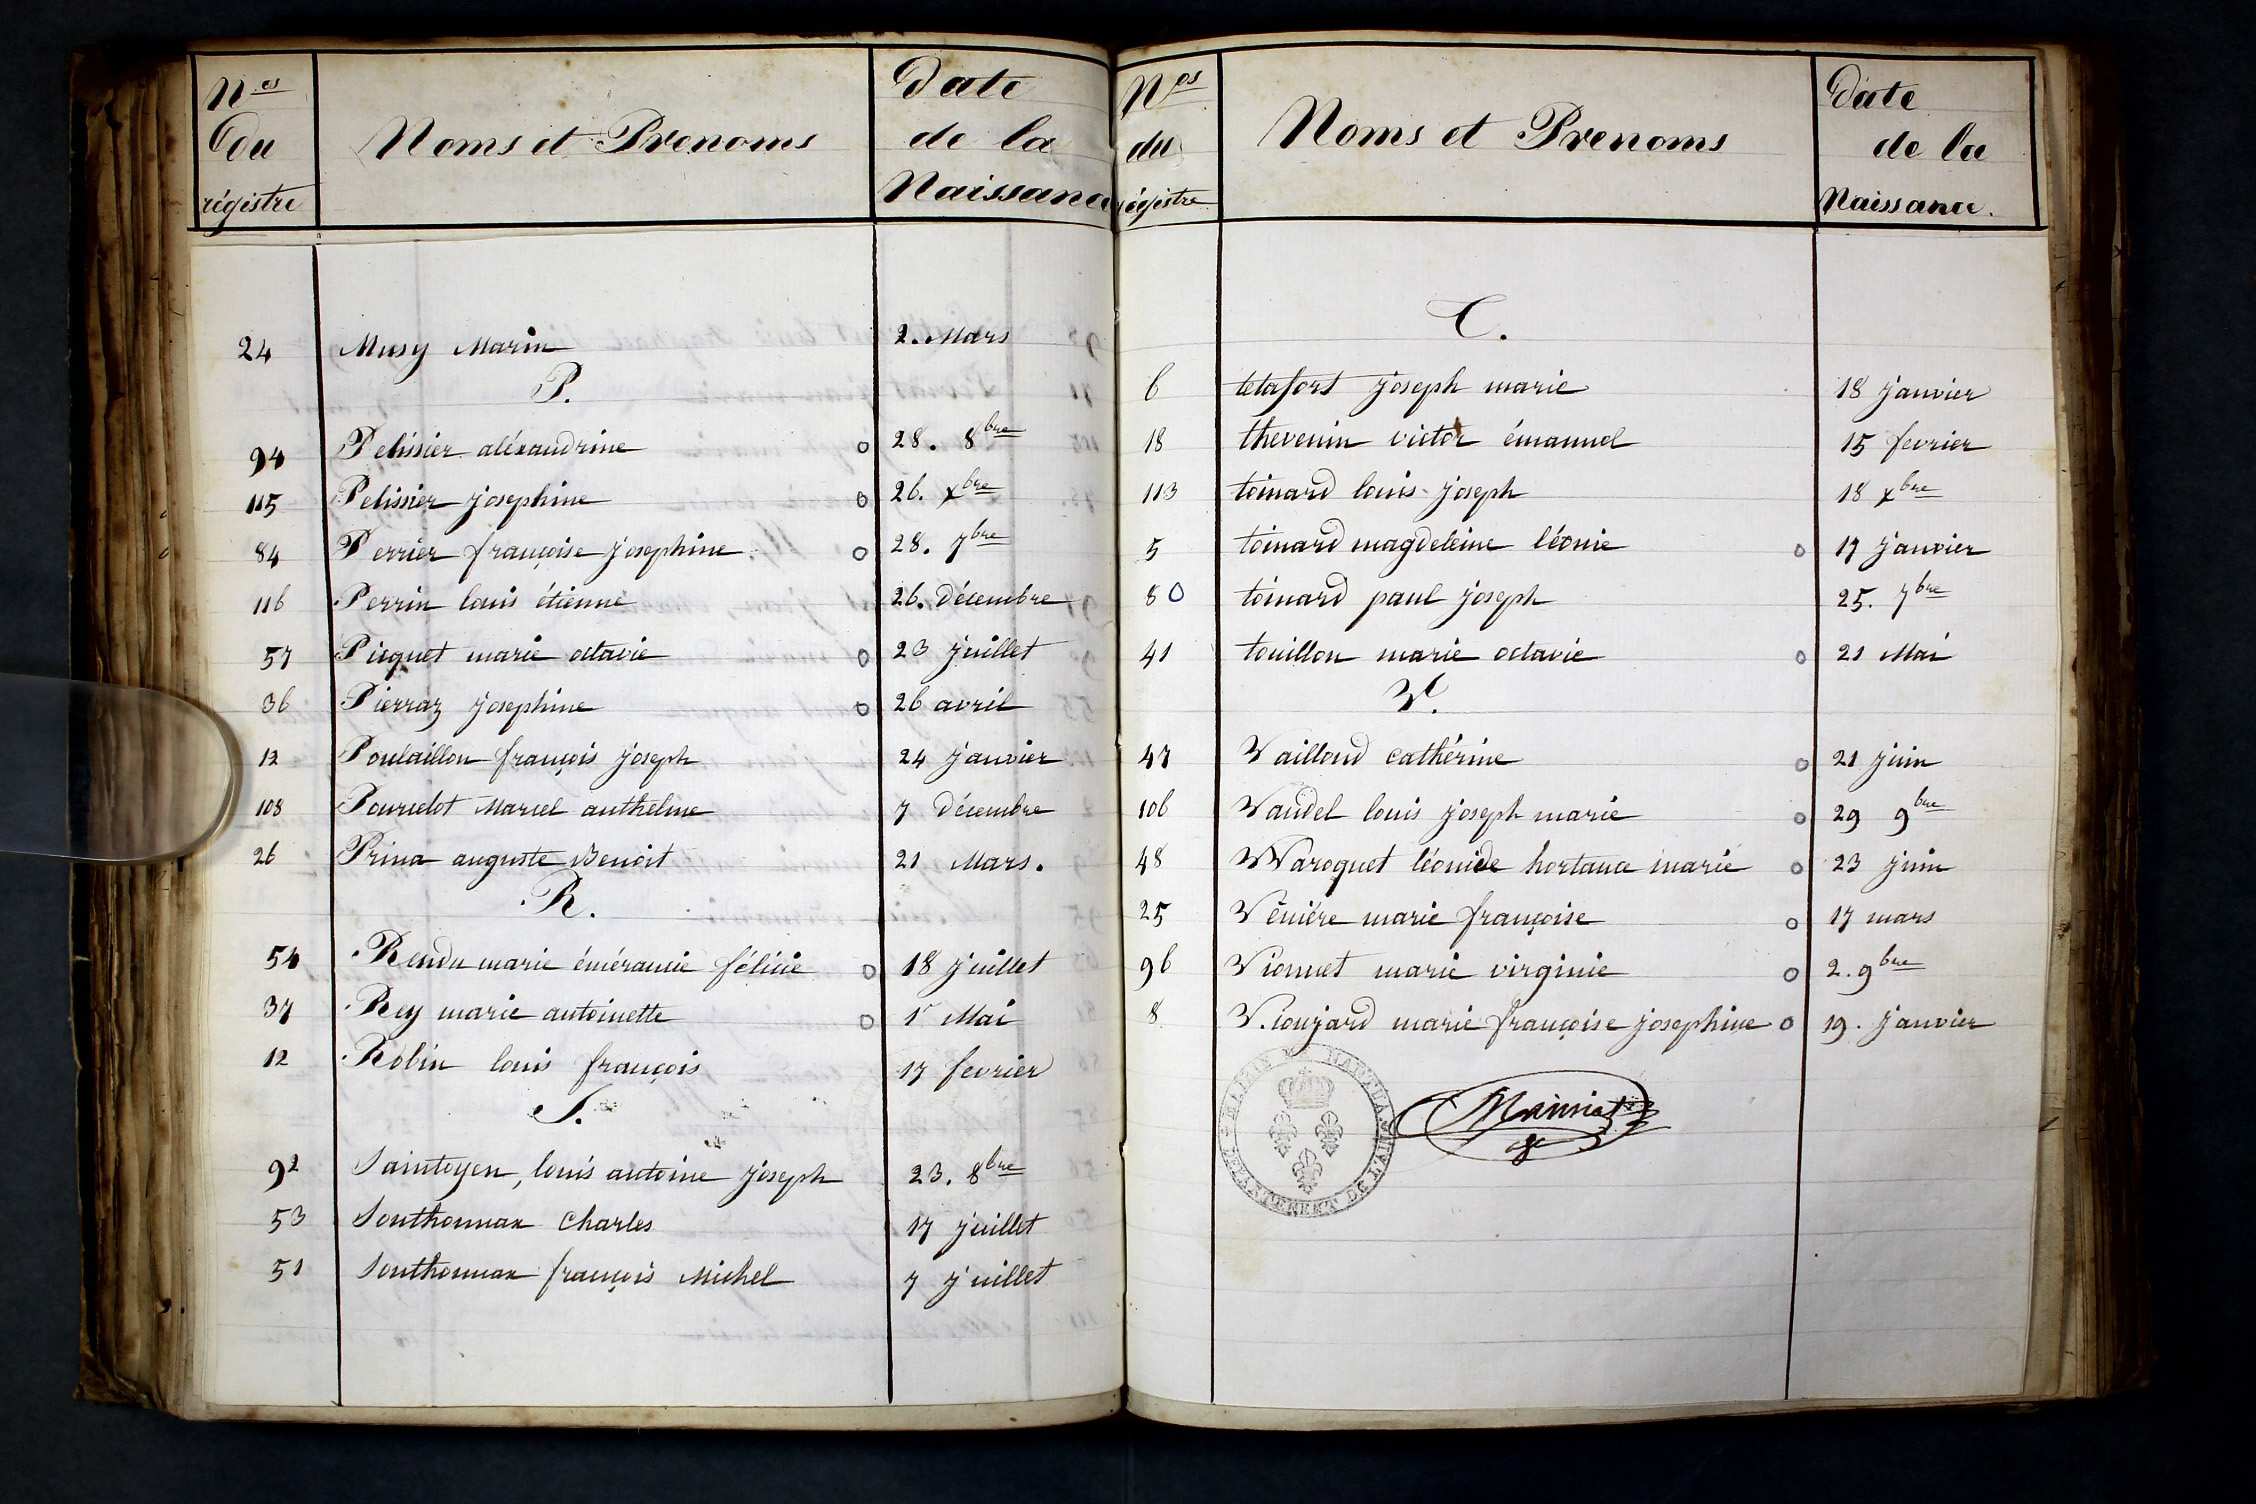 Nos
du
régistre
Noms et Prenoms
Date
de la
Naissance
24 Musy Marin 2. Mars
P.
94 Pelissier aléxandrine o 28. 8bre
115 Pelissier josephine o 26. xbre
84 Perrier françoise josephine o 28. 7bre
116 Perrin louis étienne 26. Décembre
57 Picquet marie octavie o 23 juillet
36 Pierraz josephine o 26 avril
12 Poulaillon françois joseph 24 janvier
108 Pourcelot Marcel anthelme 7 Décembre
26 Prina auguste Benoit 21 Mars.
R.
54 Rendu marie émérancie félicie o 18 juillet
37 Rey marie antoinette o 1r Mai
12 Robin louis françois 17 fevrier
S.
92 Saintoyen, louis antoine joseph 23. 8bre
53 Southonnax Charles 17 juillet
51 Southonnax françois Michel 7 juillet
Nos
du
régistre
Noms et Prenoms
Date
de la
Naissance.
T.
6 tetafort joseph marie 18 janvier
18 thevenin victor émanuel 15 fevrier
113 toinard louis joseph 18 xbre
5 toinard magdeleine léonie o 17 janvier
80 toinard paul joseph 25. 7bre
41 touillon marie octavie o 21 Mai
V.
47 Vailloud cathérine o 21 juin
106 Vaudel louis joseph marie o 29 9bre
48 Waroquet léonide hortance marie o 23 juin
25 Vénière marie françoise o 17 mars
96 Vionnet marie virginie o 2. 9bre
8 Vioujard marie françoise josephine o 19. janvier
MAIRIE DE NANTUA
DÉPARTEMENT DE L'AIN